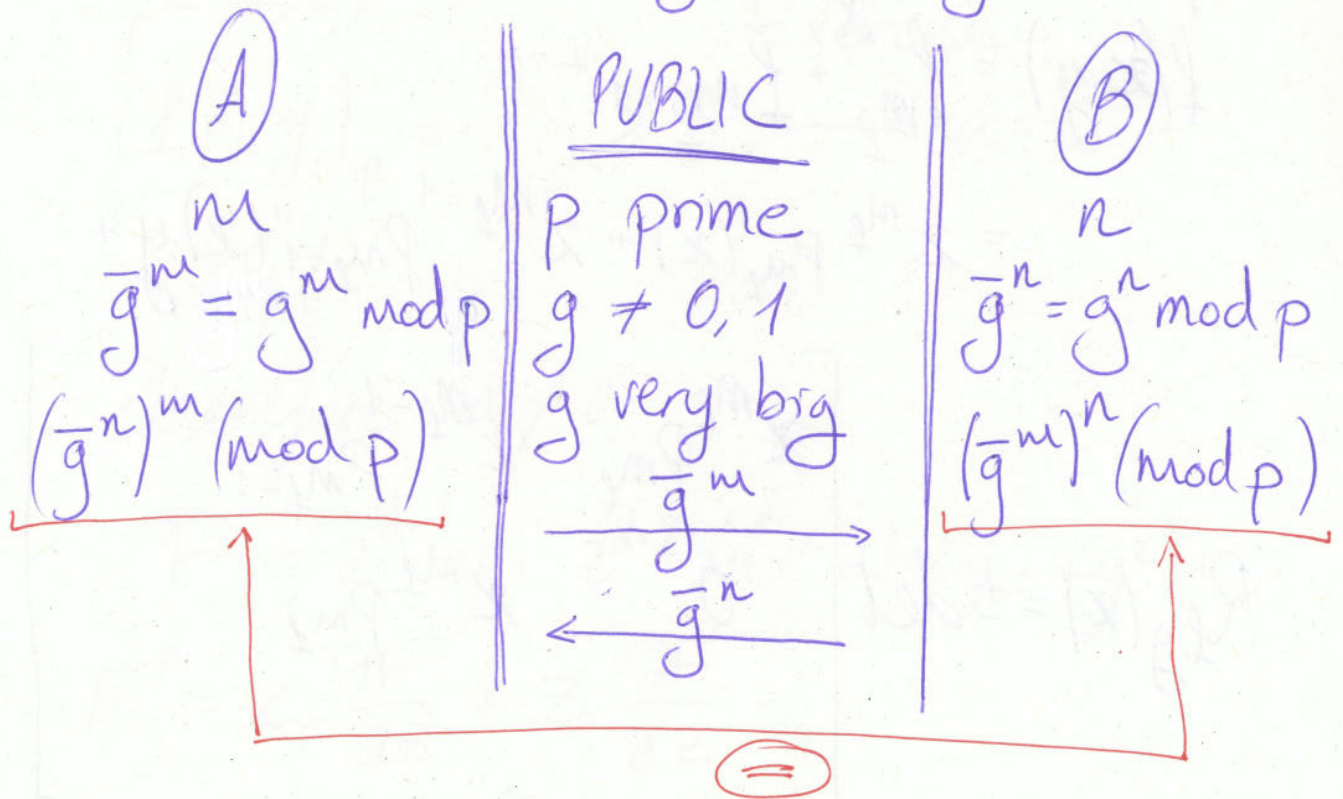 A
m
g̅^m = g^m mod p
(g̅^n)^m (mod p)
PUBLIC
p prime
g ≠ 0, 1
g very big
g̅^m
g̅^n
B
n
g̅^n = g^n mod p
(g̅^m)^n (mod p)
=